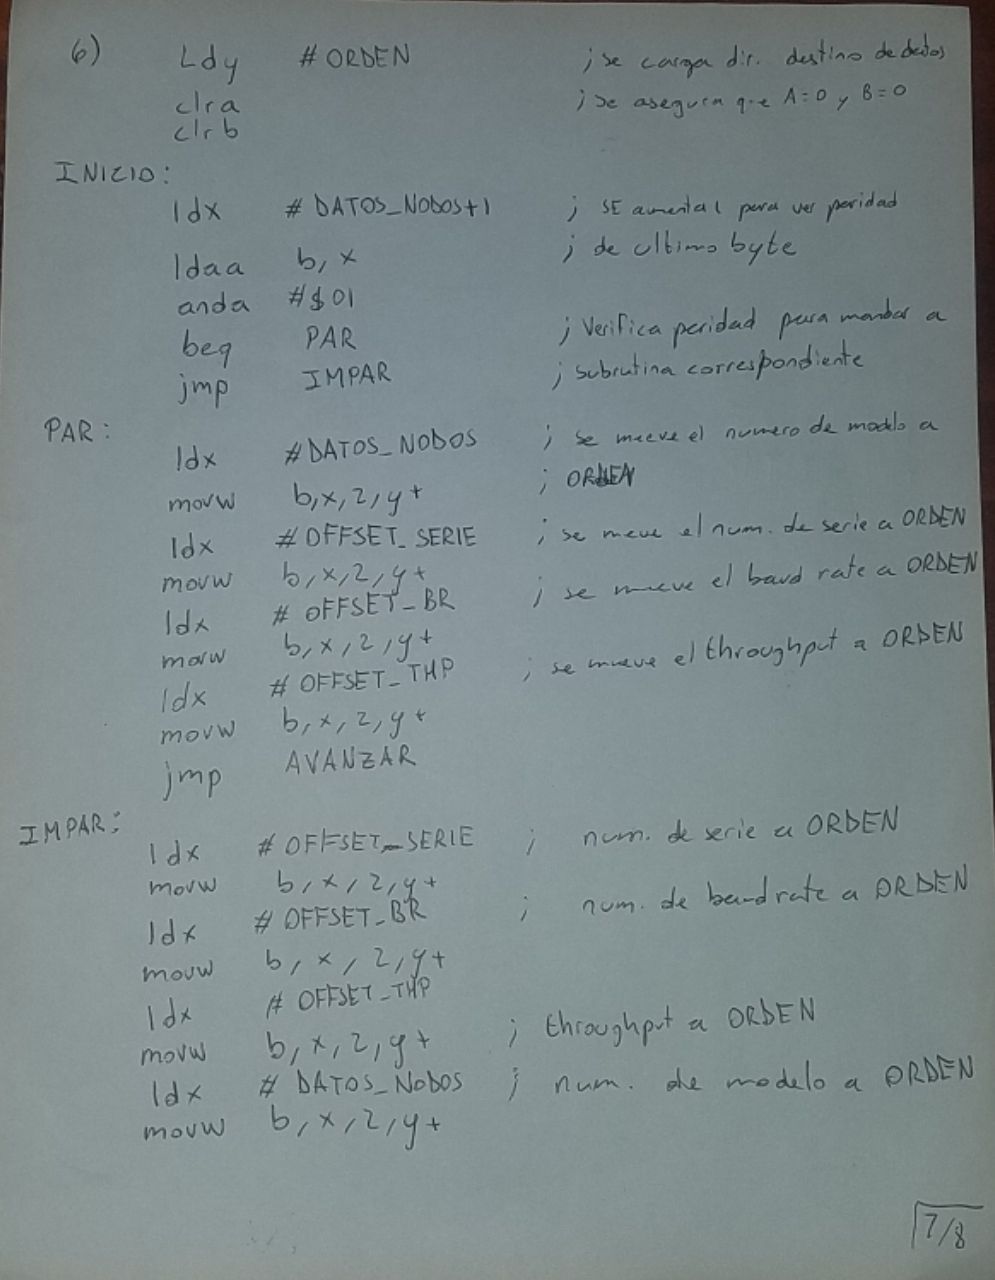 6) Ldy #ORDEN ; se carga dir. destino de datos
clra ; se asegura que A=0 y B=0
clrb
INICIO:
ldx #DATOS_NODOS+1 ; SE aumenta 1 para ver paridad
ldaa b,x ; de ultimo byte
anda #$01
beq PAR ; Verifica paridad para mandar a
jmp IMPAR ; subrutina correspondiente
PAR:
ldx #DATOS_NODOS ; se mueve el numero de modelo a
movw b,x,2,y+ ; ORDEN
ldx #OFFSET_SERIE ; se meve el num. de serie a ORDEN
movw b,x,2,y+
ldx #OFFSET_BR ; se mueve el baud rate a ORDEN
movw b,x,2,y+
ldx #OFFSET_THP ; se mueve el throughput a ORDEN
movw b,x,2,y+
jmp AVANZAR
IMPAR:
ldx #OFFSET_SERIE ; num. de serie a ORDEN
movw b,x,2,y+
ldx #OFFSET_BR ; num. de baudrate a ORDEN
movw b,x,2,y+
ldx #OFFSET_THP
movw b,x,2,y+ ; throughput a ORDEN
ldx #DATOS_NODOS ; num. de modelo a ORDEN
movw b,x,2,y+
7/8